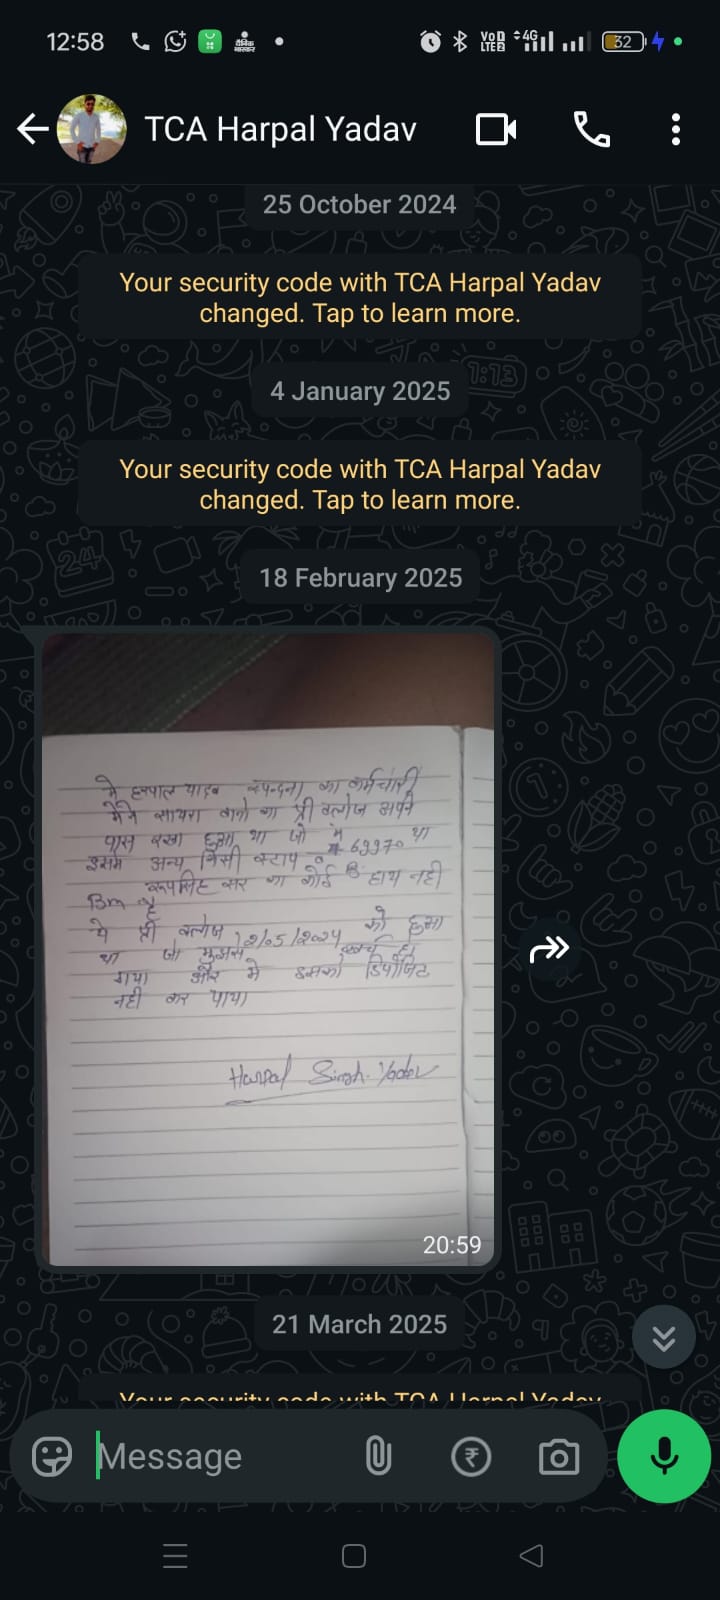 12:58
दैनिक भास्कर
VoD LTE2 4G 32
TCA Harpal Yadav
25 October 2024
Your security code with TCA Harpal Yadav
changed. Tap to learn more.
4 January 2025
Your security code with TCA Harpal Yadav
changed. Tap to learn more.
18 February 2025
मे हरपाल यादव का कर्मचारी
मेने सायरा बानो का प्री क्लोज अपने
पास रखा हुआ था जो 69970 था
इसमे अन्य किसी स्टाप व
Bm रूपसिंह सर का कोई हाथ नही
है
ये प्री क्लोज 12/05/2024 को हुआ
था जो मुझसे खर्च हो
गया और मे इसको डिपोजिट
नही कर पाया
Harpal Singh Yadav
20:59
21 March 2025
Your security code with TCA Harpal Yadav
Message